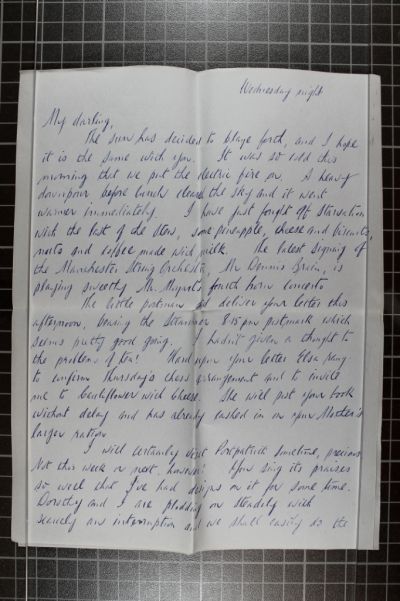 Wednesday night
My darling,
The sun has decided to blaze forth, and I hope
it is the same with you. It was so cold this
morning that we put the electric fire on. A heavy
downpour before lunch cleared the sky and it went
warmer immediately. I have just fought off starvation
with the last of the stew, some pineapple, cheese and biscuits,
nuts and coffee made with milk. The latest signing of
the Manchester String Orchestra, Mr Dennis Brain, is
playing sweetly Mr Mozart's fourth horn concerto
The little postman did deliver your letter this
afternoon, bearing the Stranraer 8.15 pm postmark which
seems pretty good going. I hadn't given a thought to
the problem of tea! upon your letter Elsa rang
to confirm Thursday's chess arrangement and to invite
me to cauliflower with cheese. She will put your book
without delay and has already cashed in on your Mother's
larger ration
I will certainly visit Portpatrick sometime, precious
Not this week or next, however! You sing its praises
so well that I've had designs on it for some time.
Dorothy and I are plodding on steadily with
scarcely an interruption and we shall easily do the